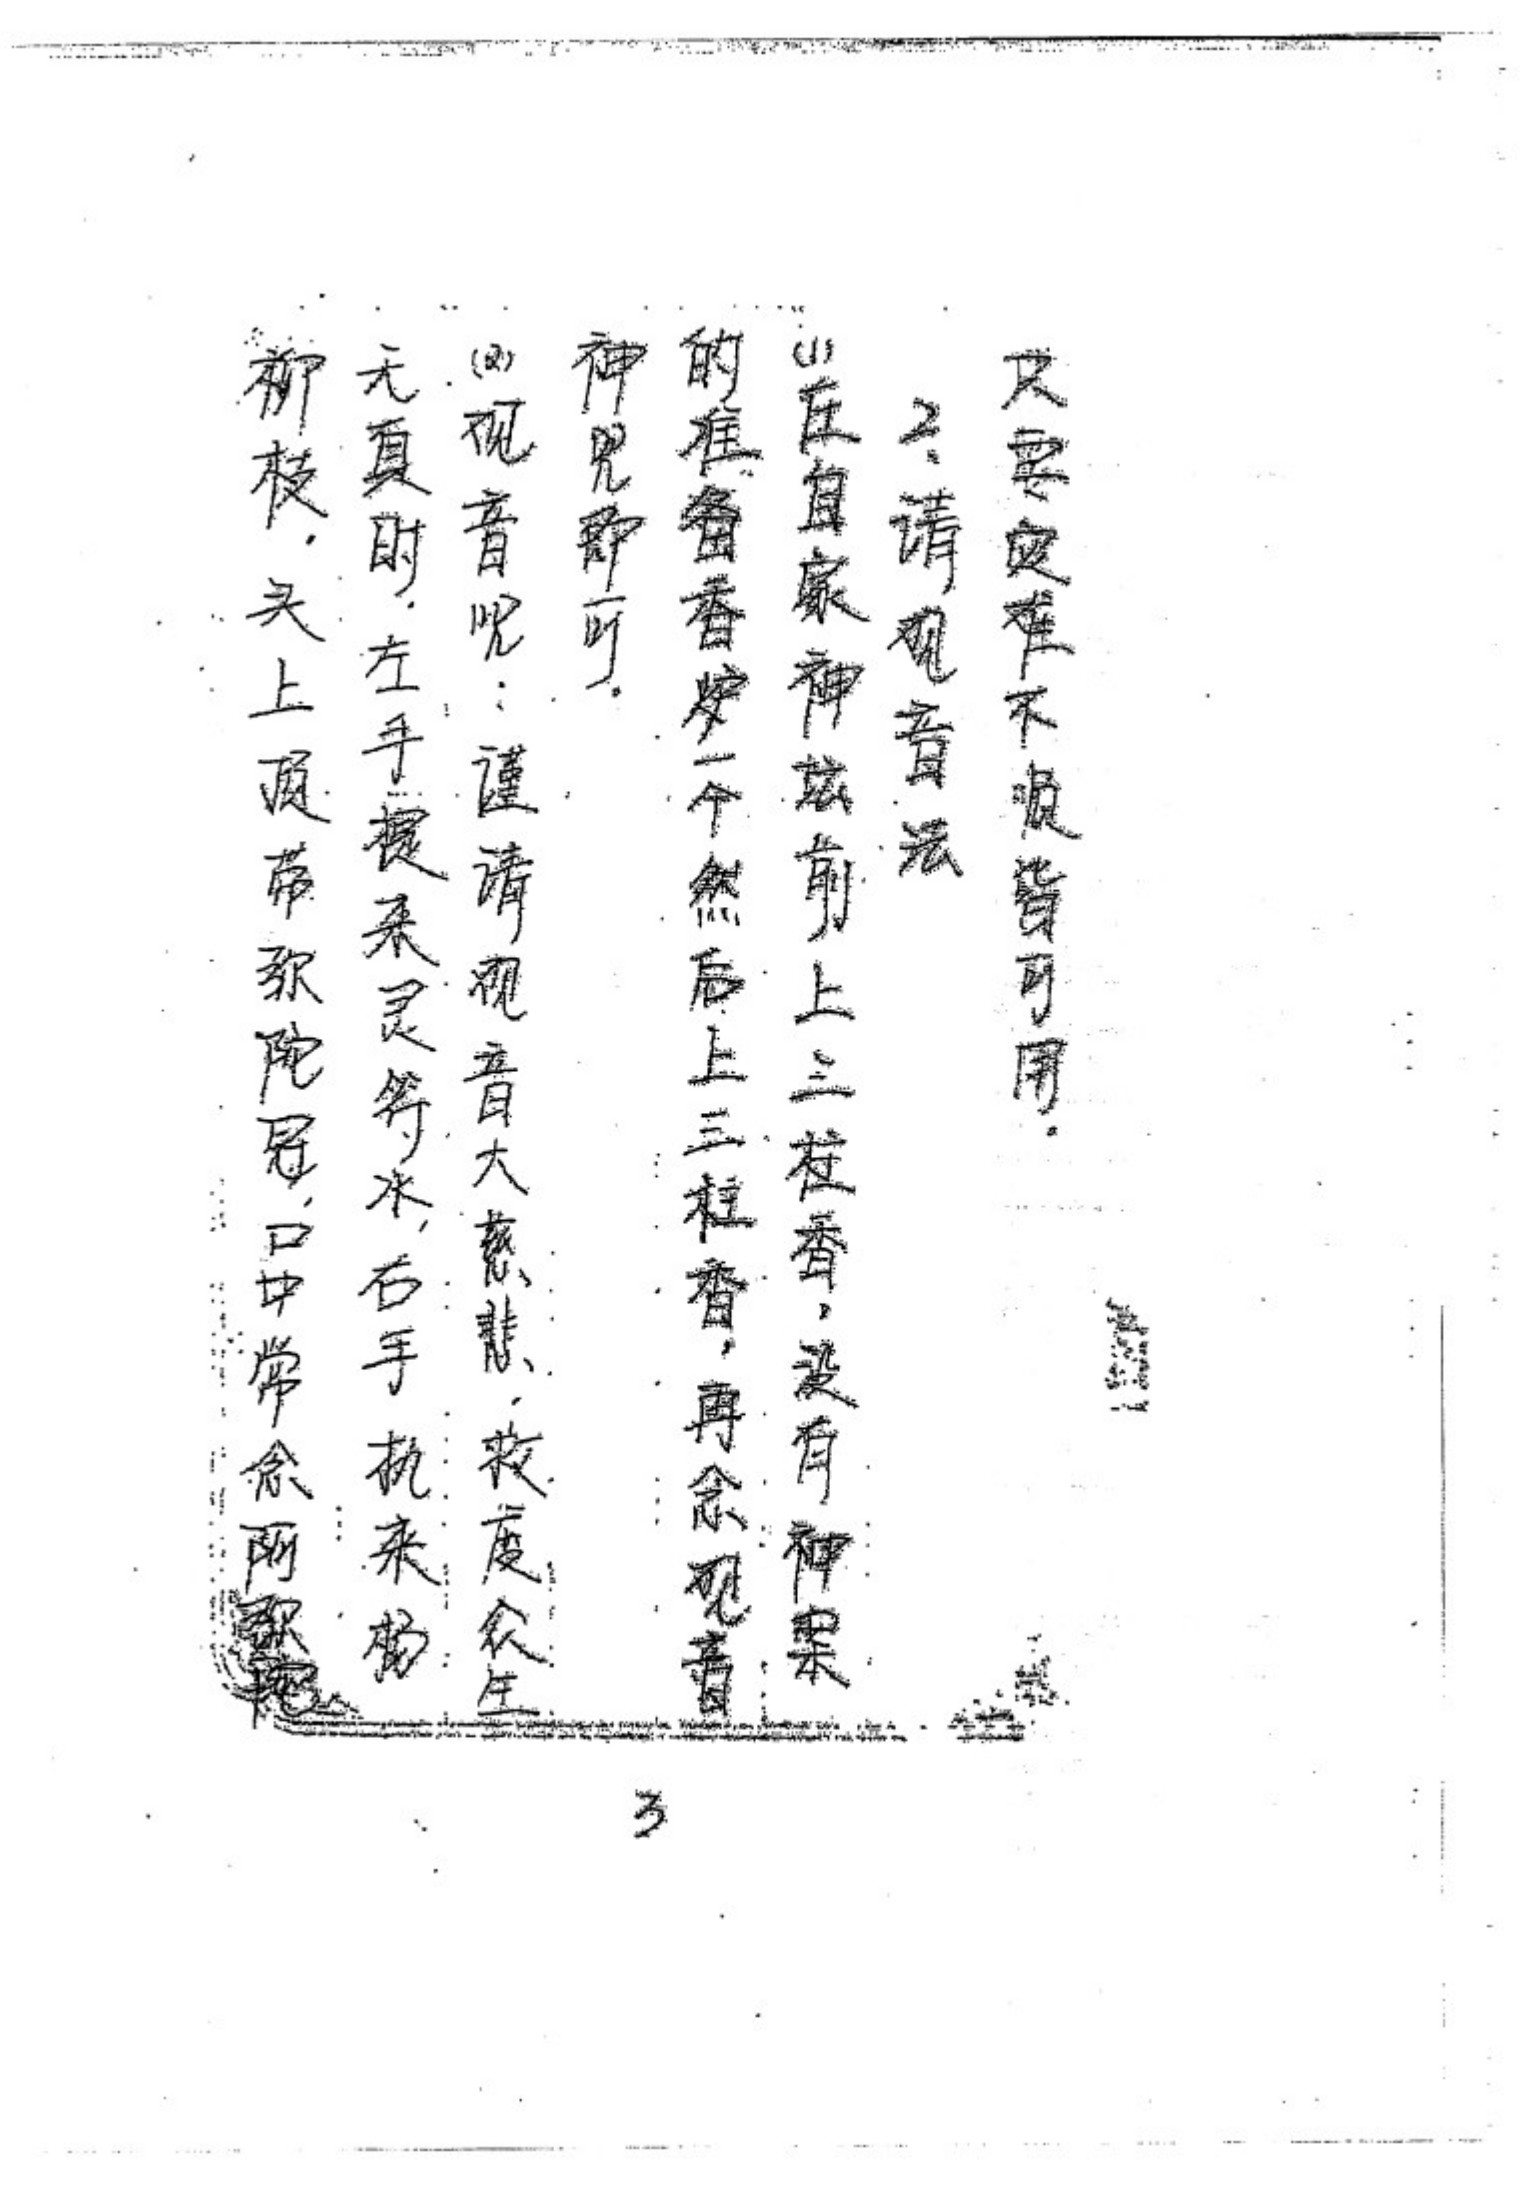 只要灾难不顺皆可用.
2、请观音法
(1)在自家神坛前上三柱香，没有神案
的准备香炉一个然后上三柱香，再念观音
神咒即可.
(2)观音咒：谨请观音大慈悲.救度众生
无頁时.左手提来灵符水，右手执来杨
柳枝.头上顶带弥陀冠，口中常念阿弥陀
3